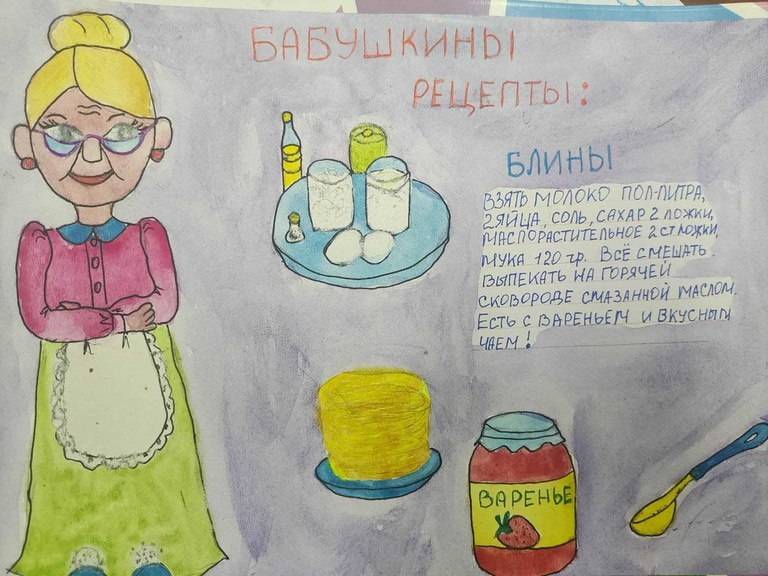 БАБУШКИНЫ
РЕЦЕПТЫ:
БЛИНЫ
ВЗЯТЬ МОЛОКО ПОЛ-ЛИТРА,
2 ЯЙЦА, СОЛЬ, САХАР 2 ЛОЖКИ,
МАСЛОРАСТИТЕЛЬНОЕ 2 СТ ЛОЖКИ,
МУКА 120 гр. ВСЁ СМЕШАТЬ.
ВЫПЕКАТЬ НА ГОРЯЧЕЙ
СКОВОРОДЕ СМАЗАННОЙ МАСЛОМ.
ЕСТЬ С ВАРЕНЬЕМ И ВКУСНЫМ
ЧАЕМ!
ВАРЕНЬЕ